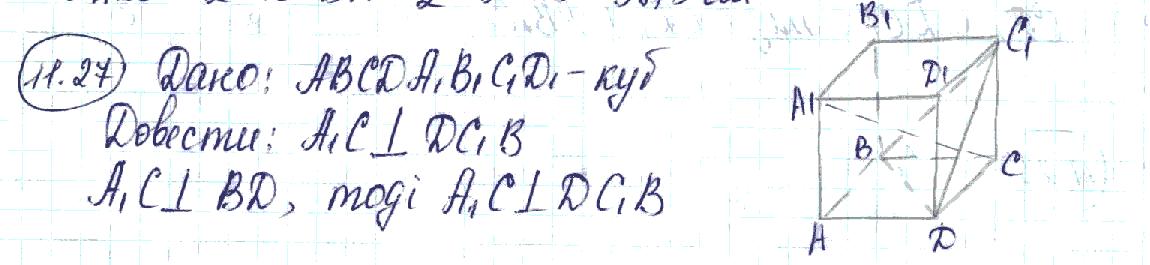 11.27 Дано: ABCDA₁B₁C₁D₁ - куб
Довести: A₁C ⊥ DC₁B
A₁C ⊥ BD, тоді A₁C ⊥ DC₁B
B₁
C₁
D₁
A₁
B
C
A
D